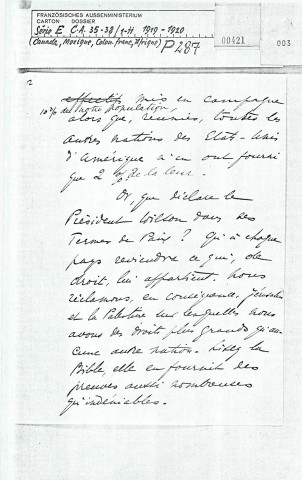 FRANZÖSISCHES AUSSENMINISTERIUM
CARTON DOSSIER
Série E C.A. 35-38/1-11 1919-1920
(Canada, Mexique, Colon. franç. Afrique)
P287
00421
003
2
effectifs mis en campagne
10% de notre population,
alors que, réunies, toutes les
autres nations des Etats-Unis
d'Amérique n'en ont fourni
que 2% de la leur.
Or, que déclare le
Président Wilson dans ses
Termes de Paix ? Qu'à chaque
pays reviendra ce qui, de
droit, lui appartient. Nous
réclamons, en conséquence, Jérusalem
et la Palestine sur lesquelles nous
avons des droits plus grands qu'au-
cune autre nation. Lisez la
Bible, elle en fournit des
preuves aussi nombreuses
qu'indéniables.